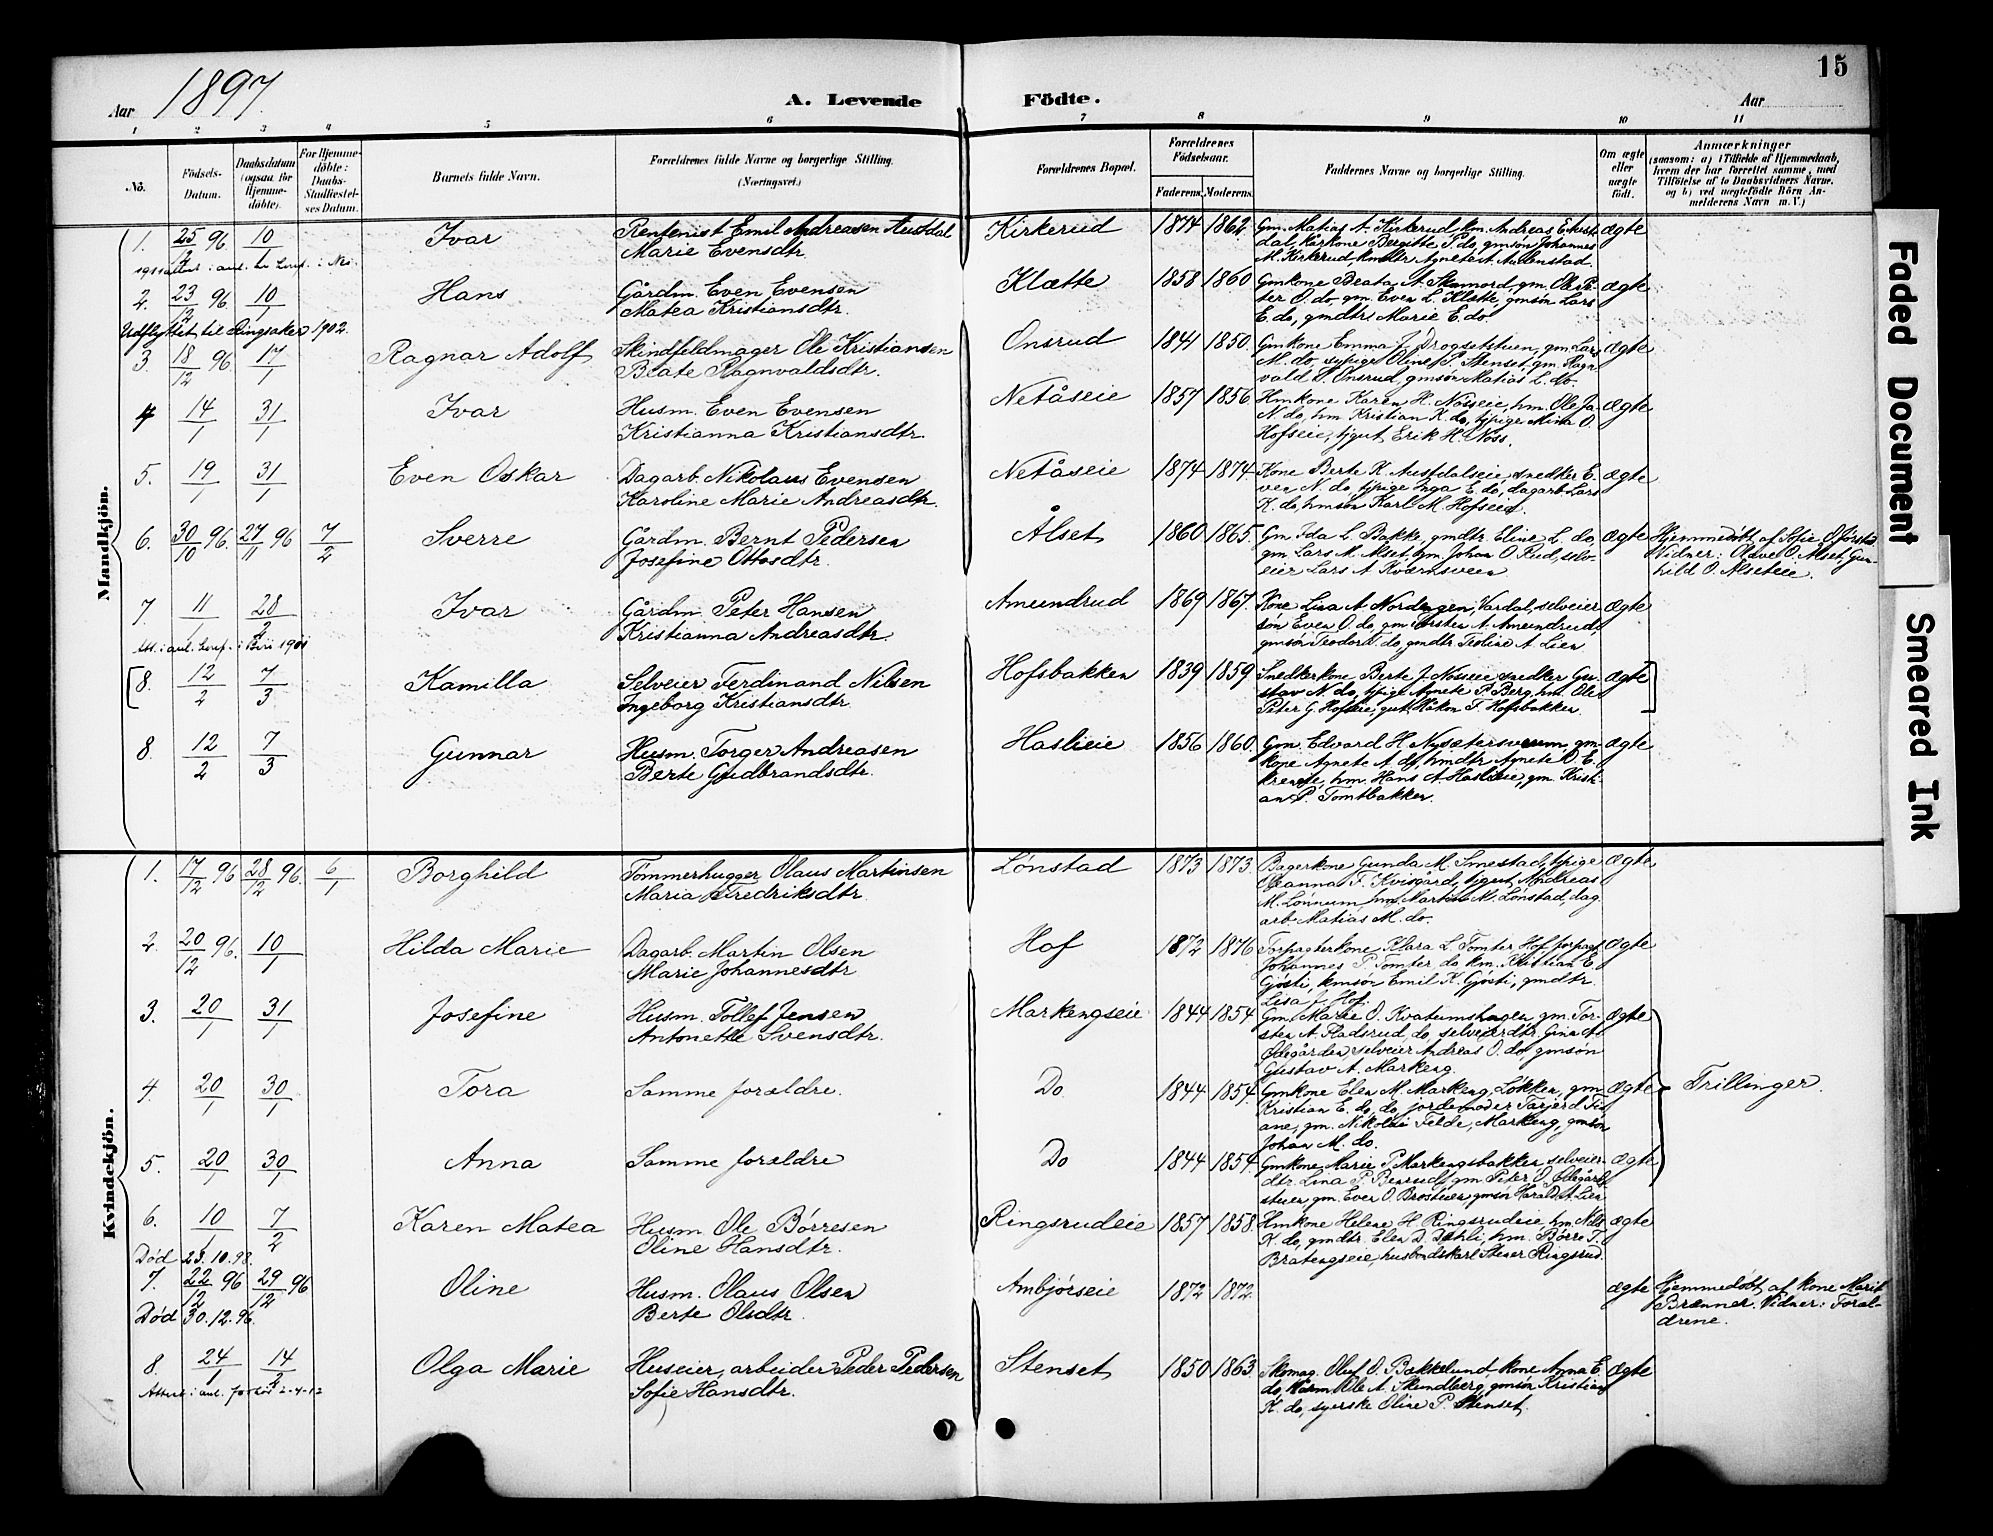 15
Aar 1897.
A. Levende Födte.
Aar
1 2 3 4 5 6 7 8 9 10 11
No.
Födsels-Datum.
Daabsdatum (ogsaa for Hjemme-döbte).
For Hjemme-döbte: Daabs-Stadfæstel-ses Datum.
Barnets fulde Navn.
Forældrenes fulde Navne og borgerlige Stilling.
(Næringsvei.)
Forældrenes Bopæl.
Forældrenes Födselsaar.
Faderens. Moderens.
Faddernes Navne og borgerlige Stilling.
Om ægte eller uægte födt.
Anmærkninger
(saasom: a) i Tilfælde af Hjemmedaab,
hvem der har forrettet samme, med
Tilföielse af to Daabsvidners Navne,
og b) ved uegtefödte Börn An-
melderens Navn m. V.)
Mandkjön.
1. 25/12 96 10/1 Ivar
Rentenist Emil Andreasen Austdal
Marie Evensdtr.
Kirkerud 1874 1862
Gm. Matias A. Kirkerud, km. Andreas
dal, Kirkone Bergitte P. do, gmsøn Johannes
M. Kirkerud, Agnete A.
ægte
2. 23/12 96 10/1 Hans
Gårdm. Even Evensen
Matea Kristiansdtr.
Klætte 1858 1860
Gmkone Beata A. Skumord, gm. Ole Pe-
ter O. do, gm. Even L. Kløtte, gmsøn Lars
E. do, gmdtr Marie E. do.
ægte
Udflyttet til Ringsaker 1902.
3. 18/12 96 17/1 Ragnar Adolf
Skindfeldmager Ole Kristiansen
Beate Ragnvaldsdtr.
Onsrud 1841 1850.
Gmkone Emma J. Drogsetstuen, gm. Lars
M. do, sypige Oline P. Stenset, gm. Ragn
vald O. Onsrud, gmsøn Matias L. do.
ægte
4 14/1 31/1 Ivar
Husm. Even Evensen
Kristianna Kristiansdtr.
Netåseie 1857 1856
Hmkone Karen H. Nøsseie, hm. Ole Ja-
N. do, hm. Kristian K. do, tjpige Mina O.
Hofseie, tjgut Erik H. Nøss.
ægte
5. 19/1 31/1 Even Oskar
Dagarb. Nikolaus Evensen
Karoline Marie Andreasdtr.
Netåseie 1874 1874.
Kone Berte K. Austdalseie, snedker E-
ven N. do, tjpige Inga E. do, dagarb. Lars
K. do, hmsøn Karl M. Hofseie.
ægte
6. 30/10 96. 27/11 96 7/2 Sverre
Gårdm. Bernt Pedersen
Josefine Ottosdtr.
Ålset 1860 1865.
Gm. Ida L. Bakke, gmdtr. Eline L. do,
gm. Lars M. Alset, gm. Johan O. Rud, selv-
eier Lars A. Kværnsveen
ægte
Hjemmedøbt af Sofie O. Jørstad
Vidner: Olave O. Ålset, Gun-
hild O. Alseteie.
7. 11/1 28/2 Ivar
Gårdm. Peter Hansen
Kristianna Andreasdtr.
Amundrud 1869 1867.
Kone Lisa A. Nordengen, Vardal, selveier
søn Even O. do, gm. Torsten A. Amundrud,
gmsøn Teodor T. do, gmdtr. Teoline A. Lien
ægte
[8. 12/2 7/3 Kamilla
Selveier Ferdinand Nilsen
Ingeborg Kristiansdtr.
Hofsbakken 1839 1859
Snedkerkone Berte J. Nøsseie, snedker Gu-
stav N. do, tjpige Agnete P. Berg, hm. Ole
Peter G. Hofseie, gut Håkon F. Hofsbakken.
ægte]
8. 12/2 7/3 Gunnar
Husm. Torger Andreasen
Berte Gudbrandsdtr.
Haslieie 1856 1860.
Gm. Edvard H. Nysætersveen, gm-
kone Agnete A. do, hmdtr Agnete O. E-
hm. Hans A. Haslieie, gm. Krist-
an P. Tomtbakken.
ægte
Kvindekjön.
1. 17/12 96 28/12 96. 6/1 Borghild
Tømmerhugger Olaus Martinsen
Maria Fredriksdtr.
Lønstad 1873 1873.
Bagerkone Gunda M. Smestad, tjpige
Oleanna F. Kvisgård, tjgut Andreas
M. Lønnum, hm. Martin M. Lønstad, dag
arb. Matias M. do.
ægte
2. 20/12 96. 10/1 Hilda Marie
Dagarb. Martin Olsen
Marie Johannesdtr.
Hof 1872 1876
Forpagterkone Klara L. Tomter, Hof, forpagt.
Johannes P. Tomter, do, km. Kristian E.
Gjøsti, kmsøn Emil K. Gjøsti, gmdtr.
Lisa J. Hof.
ægte
3. 20/1 31/1 Josefine
Husm. Tollef Jensen
Antonette Svensdtr.
Markengseie 1844 1854
Gm. Marie O. Kvatumshagen, gm. Tor-
sten A. Fladsrud, do, selveierdtr. Gina A.
Ødegården, selveier Andreas O. do, gmsøn
Gustav A. Markeng.
ægte
4. 20/1 30/1 Tora
Samme forældre.
Do 1844 1854.
Gmkone Elen M. Markeng, Løkken, gm.
Kristian E. do, do, jordemoder Tarjerd Ti-
ane, gm. Nikolai Felde, Markeng, gmsøn
Johan M. do.
ægte
Trillinger.
5. 20/1 30/1 Anna
Samme forældre
Do 1844 1854.
Gmkone Marie P. Markengsbakken, selveier-
dtr. Lina P. Benrud, gm. Peter O. Ødegård-
stuen, gm. Even O. Brosteien, gmsøn Harald A. Lien
ægte
6. 10/1 7/2 Karen Matea
Husm. Ole Børresen
Oline Hansdtr.
Ringsrudeie 1857 1858.
Hmkone Helene H. Ringsrudeie, hm. Nils
K. do, gmdtr. Elen D. Dæhli, hm. Børre T.
Bratengseie, husbondskarl Stener Ringsrud.
ægte
Død 23.10.98.
7. 22/12 96 29/12 96 Oline
Husm. Olaus Olsen
Berte Olsdtr.
Ambjørseie 1872 1872.
ægte
Hjemmedøbt af kone Marit
Brænner. Vidner: Foræl-
drene.
Død 30.12.96.
8. 24/1 14/2 Olga Marie
Huseier, arbeider Peder Pedersen
Sofie Hansdtr.
Stenset 1850 1863.
Skomag. Oluf O. Bækkelund, kone Anna E.
do, Ole A. Skundberg, gmsøn Kristian
K. do, syerske Oline P. Stenset.
ægte
Faded Document
Smeared Ink